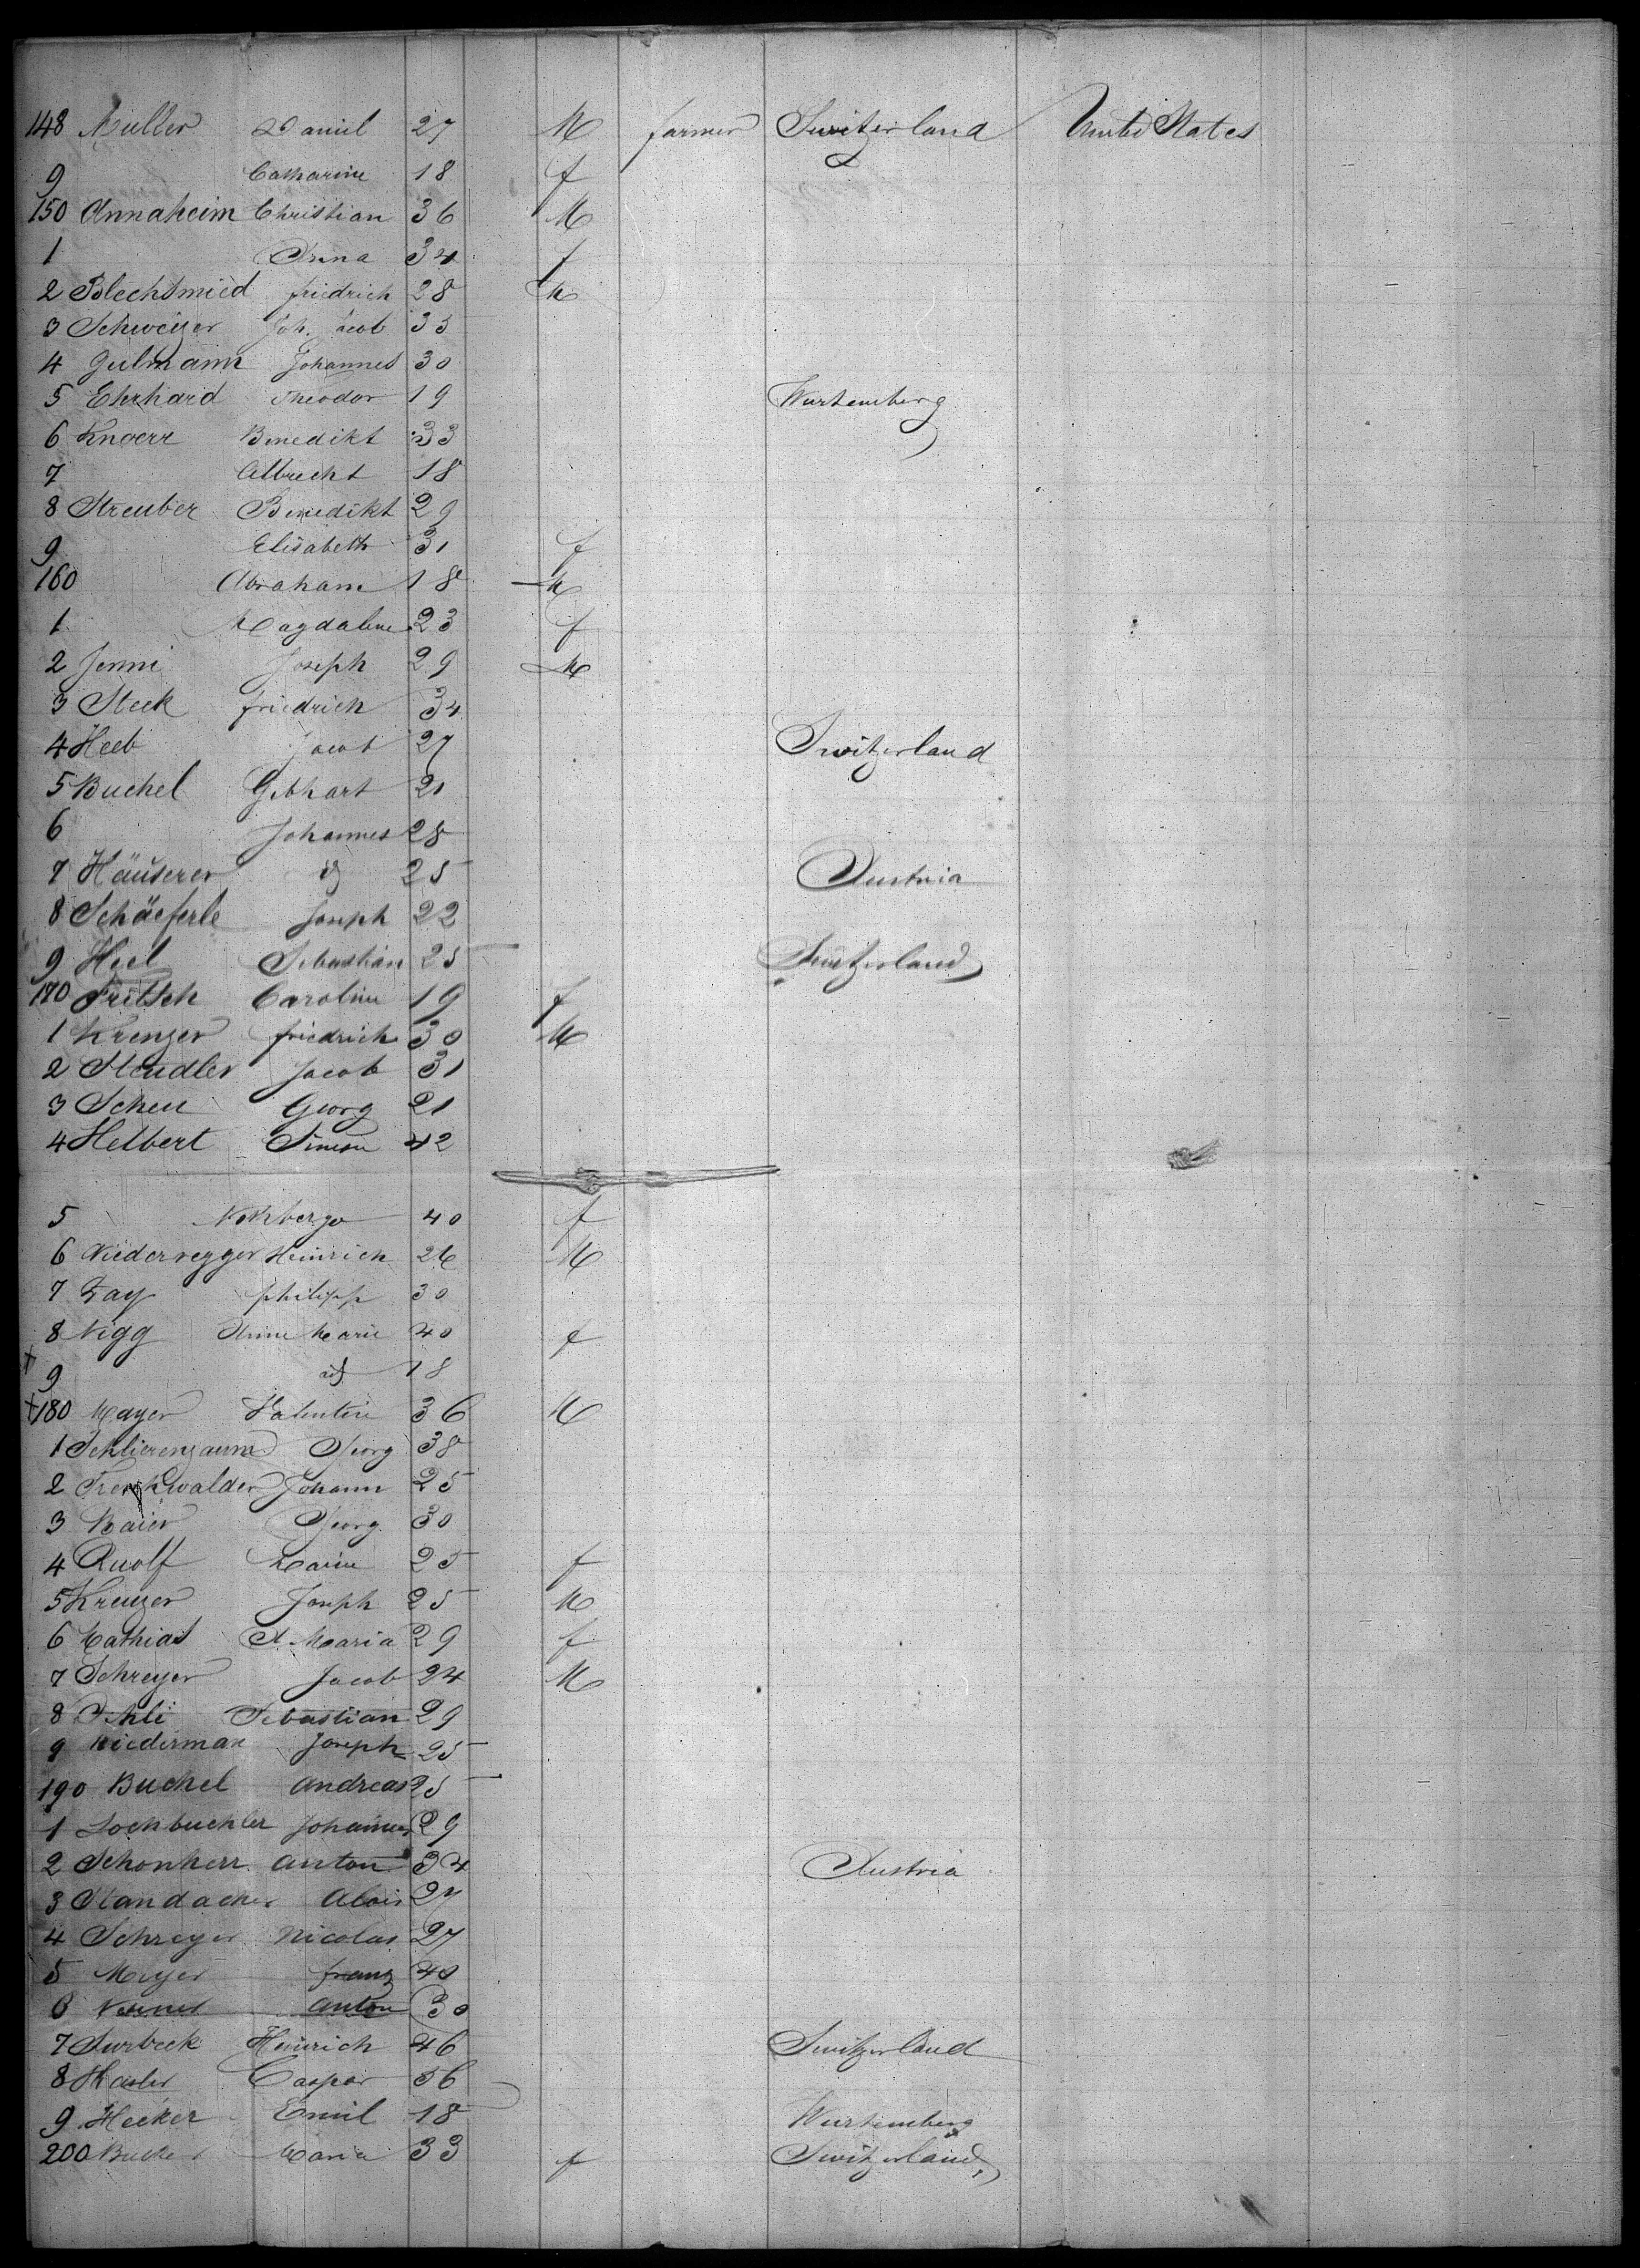 148 Muller Daniel 27 M farmer Switzerland United States
9 Catharine 18 f
150 Annaheim Christian 36 M
1 Anna 34 f
2 Blechsmied friedrich 28 M
3 Schweizer Joh. Jacob 33
4 Gulmann Johannes 30
5 Ehrhard Theodor 19 Wurtemberg
6 Knoerr Benedikt 33
7 Albrecht 18
8 Streuber Benedikt 29
9 Elisabeth 31 f
160 Abraham 18 M
1 Magdalene 23 f
2 Jenni Joseph 29 M
3 Steck friedrich 34
4 Heeb Jacob 27 Switzerland
5 Buchel Gebhart 21
6 Johannes 28
7 Häuserer id 25 Austria
8 Schäeferle Joseph 22
9 Heel Sebastian 25 Switzerland
170 Fritsch Caroline 19 f
1 Krenzer friedrich 30 M
2 Steudler Jacob 31
3 Scheu Georg 21
4 Helbert Simeon 42
5 40 f
6 Niederegger Heinrich 26 M
7 Zay philipp 30
8 Nigg Anne Marie 40 f
9 id 18
180 Mayer Valentin 36 M
1 Schlierenzaum Georg 38
2 Trenkwalder Johann 25
3 Baier Georg 30
4 Ruolf Marie 25 f
5 Kreuzer Joseph 25 M
6 Mathias A. Maria 29 f
7 Schreyer Jacob 24 M
8 Ochli Sebastian 29
9 Niederman Joseph 25
190 Buchel Andreas 25
1 Lochbuchler Johannes 29
2 Schonherr Anton 34 Austria
3 Standacher Alois 27
4 Schreyer Nicolas 27
5 Meyer franz 40
6 Anton 30
7 Surbeck Heinrich 46 Switzerland
8 Hasler Caspar 56
9 Hecker Emil 18 Wurtemberg
200 Maria 33 f Switzerland